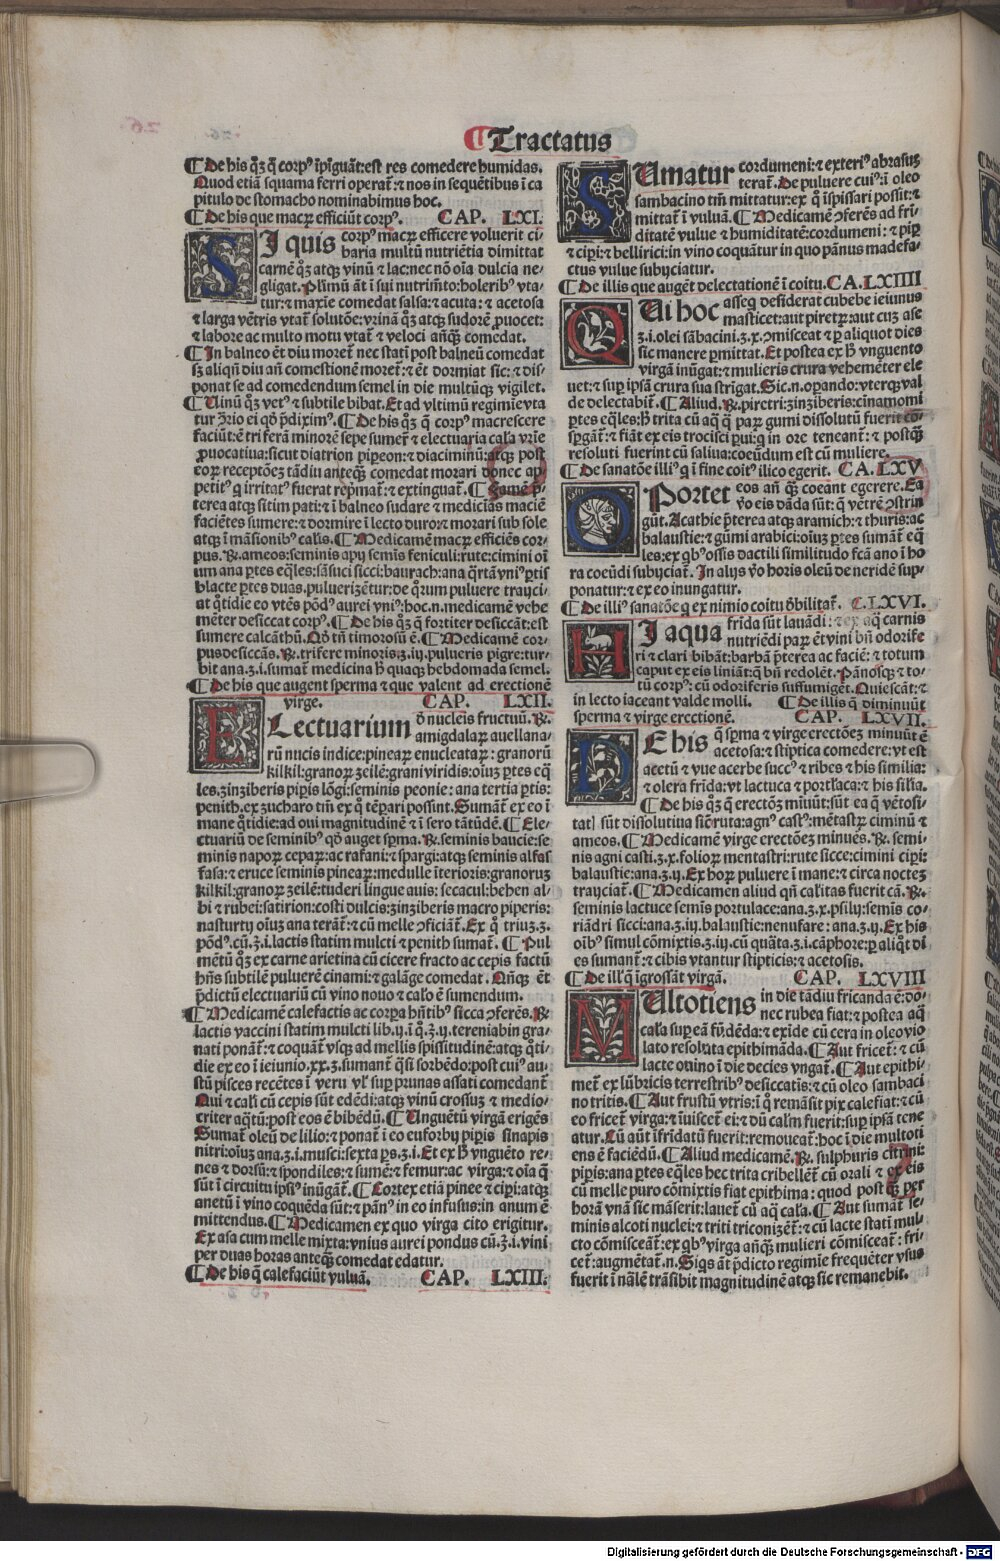 Tractatus
¶ De his q̄ȝ q̄ corpꝰ īpīguāt: est res comedere humidas.
Quod etiā squama ferri operat̄: ⁊ nos in sequētibus ī ca
pitulo de stomacho nominabimus hoc.
¶ De his que macꝝ efficiūt corpꝰ. CAP. LXI.
SI quis corpꝰ macꝝ efficere voluerit ci-
baria multū nutriētia dimittat
carnē qͦȝ atqꝫ vinū ⁊ lac: nec nō oīa dulcia ne-
gligat. Pl̄imū āt ī sui nutrim̄to: holeribꝰ vta-
tur: ⁊ maxīe comedat salsa: ⁊ acuta: ⁊ acetosa
⁊ larga vētris vtat̄ solutōe: vrinā qͦȝ atqꝫ sudorē ꝓuocet:
⁊ labore ac multo motu vtat̄ ⁊ veloci añqꝫ comedat.
¶ In balneo ēt diu moret̄ nec statī post balneū comedat
sꝫ aliqñ diu añ comestionē moret̄: ⁊ ēt dormiat sic: ⁊ dis-
ponat se ad comedendum semel in die multūqꝫ vigilet.
¶ Uinū qͦȝ vetꝰ ⁊ subtile bibat. Et ad vltimū regimīe vta
tur ꝯ̄rio ei qͦd p̄diximꝰ. ¶ De his qͦȝ q̄ corpꝰ macrescere
faciūt: ē tri ferā minorē sepe sumet̄ ⁊ electuaria cal̄a vrīe
ꝓuocatiua: sicut diatrion pipeon: ⁊ diaciminū: atqꝫ post
eoꝝ receptōeȝ tādiu anteqꝫ comedat morari donec ap
petitꝰ q̄ irritatꝰ fuerat rep̄mat̄: ⁊ extinguat̄. ¶ Famē p̄-
terea atqꝫ sitim pati: ⁊ ī balneo sudare ⁊ medicīas maciē
faciētes sumere: ⁊ dormire ī lecto duro: ⁊ morari sub sole
atqꝫ ī māsionibꝰ cal̄is. ¶ Medicamē macꝝ efficiēs cor-
pus. ℞. ameos: seminis apij semīs feniculi: rute: cimini oī
um ana p̄tes eq̄les: sāsuci sicci: baurach: ana q̄rtā vniꝰ p̄tis
blacte p̄tes duas. pulueriȝēt̄ur: de qͦrum puluere trayci-
at qͦtidie eo vtēs pōdꝰ aurei vniꝰ: hoc .n. medicamē vehe
mēter desiccat corpꝰ. ¶ De his qͦȝ q̄ fortiter desiccāt: est
sumere calcāthū. Qͦd tñ timorosū ē. ¶ Medicamē cor-
pus desiccās. ℞. trifere minoris .ȝ.iij. pulueris pigre: tur-
bit ana .ȝ.i. sumat̄ medicina h̄ quaqꝫ hebdomada semel.
¶ De his que augent sperma ⁊ que valent ad erectionē
virge. CAP. LXII.
ELectuarium ō nucleis fructuū. ℞.
amigdalaꝝ auellana-
rū nucis indice: pineaꝝ enucleataꝝ: granorū
kilkil: granoꝝ ȝeilē: grani viridis: oīuȝ p̄tes eq̄
les. ȝinȝiberis pipis lōgi: seminis peonie: ana tertia p̄tis:
penith. ex ȝucharo tm̄ ex qͦ tēpari possint. Sumat̄ ex eo ī
mane qͦtidie: ad oui magnitudinē ⁊ ī sero tātūdē. ¶ Ele-
ctuariū de seminibꝰ qͦd auget sp̄ma. ℞. seminis baucie: se-
minis napoꝝ cepaꝝ: ac rafani: ⁊ spargi: atqꝫ seminis alfas
fasa: ⁊ eruce seminis pineaꝝ: medulle īterioris: granoruȝ
kilkil: granoꝝ ȝeilē: tuderi lingue auis: secacul: behen al-
bi ⁊ rubei: satirion: costi dulcis: ȝinȝiberis macro piperis:
nasturtij oīuȝ ana terāt̄: ⁊ cū melle ꝯficiāt̄. Ex qͦ triuȝ .ȝ.
pōdꝰ .cū .ȝ.i. lactis statim mulcti ⁊ penith sumat̄. ¶ Pul
mētū qͦȝ ex carne arietina cū cicere fracto ac cepis factū
hñs subtilē puluerē cinami: ⁊ galāge comedat. Qñqꝫ ēt
p̄dictū electuariū cū vino nouo ⁊ cal̄o ē sumendum.
¶ Medicamē calefactis ac corp̄a hñtibꝰ sicca ꝯferēs. ℞
lactis vaccini statim mulcti lib.ij. ī qͦ .ȝ.ij. tereniabin gra-
nati ponāt̄: ⁊ coquāt̄ vsqꝫ ad mellis spissitudinē: atqꝫ qͦti-
die ex eo ī ieiunio .xx.ȝ. sumant̄ q̄si sorbēdo: post cuiꝰ au-
stū pisces recētes ī veru vl̄ suꝑ prunas assati comedant̄
Qui ⁊ cal̄i cū cepis sūt edēdi: atqꝫ vinū crossuȝ ⁊ medio-
criter aq̄tū: post eos ē bibēdū. ¶ Unguētū virgā erigēs
Sumat̄ oleū de lilio: ⁊ ponat̄ ī eo euforbij pipis sinapis
nitri: oīuȝ ana .ȝ.i. musci: sexta p̄s .ȝ.i. Et ex h̄ vnguēto re-
nes ⁊ dorsū: ⁊ spondiles: ⁊ sumē: ⁊ femur: ac virga: ⁊ oīa q̄
sūt ī circuitu ipsiꝰ inūgāt̄. ¶ Cortex etiā pinee ⁊ cipi: atqꝫ
anetū ī vino coquēda sūt: ⁊ pānꝰ in eo infusus: in anum ē
mittendus. ¶ Medicamen ex quo virga cito erigitur.
Ex asa cum melle mixta: vnius aurei pondus cū .ȝ.i. vini
per duas horas anteqꝫ comedat edatur.
¶ De his q̄ calefaciūt vuluā. CAP. LXIII.
SUmatur cordumeni: ⁊ exteriꝰ abrasuȝ
terat̄. De puluere cuiꝰ: ī oleo
sambacino tm̄ mittatur: ex qͦ īspissari possit: ⁊
mittat̄ ī vuluā. ¶ Medicamē ꝯferēs ad fri-
ditatē vulue ⁊ humiditatē: cordumeni: ⁊ pip̄
⁊ cipi: ⁊ bellirici: in vino coquātur in quo pānus madefa-
ctus vulue subijciatur.
¶ De illis que augēt delectationē ī coitu. CA. LXIIII
QUi hoc asseq̄ desiderat cubebe ieiunus
masticet: aut piretꝝ: aut cuȝ ase
.ȝ.i. olei sābacini .ȝ.x. ꝯmisceat ⁊ ꝑ aliquot dies
sic manere ꝑmittat. Et postea ex h̄ vnguento
virgā inūgat: ⁊ mulieris crura vehemēter ele
uet: ⁊ suꝑ ipsā crura sua strīgat. Sic .n. oꝑando: vterqꝫ val
de delectabit̄. ¶ Aliud. ℞. piretri: ȝinȝiberis: cīnamomi
p̄tes eq̄les: h̄ trita cū aq̄ q̄ paꝝ gumi dissolutū fuerit cō-
sp̄gāt̄: ⁊ fiāt ex eis trocisci ꝑui: q̄ in ore teneant̄: ⁊ postqꝫ
resoluti fuerint cū saliua: coeūdum est cū muliere.
¶ De sanatōe illiꝰ q̄ ī fine coitꝰ ilico egerit. CA. LXV
OPortet eos añ qꝫ coeant egerere. Ea
v̄o eis dāda sūt: q̄ vētrē ꝯstrin
gūt. Acathie p̄terea atqꝫ aramich: ⁊ thuris: ac
balaustie: ⁊ gūmi arabici: oīuȝ p̄tes sumāt̄ eq̄
les: ex qͥbꝰ ossis dactili similitudo fc̄ā ano ī ho
ra coeūdi subijciat̄. In alijs v̄o horis oleū de neridē sup-
ponatur: ⁊ ex eo inungatur.
¶ De illiꝰ sanatōe q̄ ex nimio coitu ōbilitat̄. C. LXVI.
HI aqua frīda sūt lauādi: ⁊ ex aq̄ carnis
nutriēdi paꝝ ēt vini bñ odorife
ri ⁊ clari bibāt: barbā p̄terea ac faciē: ⁊ totum
caput ex eis liniāt: q̄ bñ redolēt. Pānosqꝫ ⁊ to-
tū corpꝰ: cū odoriferis suffumigēt. Quiescāt: ⁊
in lecto iaceant valde molli. ¶ De illis q̄ diminuūt
sperma ⁊ virge erectionē. CAP. LXVII.
DE his q̄ sp̄ma ⁊ virge erectōeȝ minuūt ē
acetosa: ⁊ stiptica comedere: vt est
acetū ⁊ vue acerbe succꝰ ⁊ ribes ⁊ his similia:
⁊ olera frīda: vt lactuca ⁊ portl̄aca: ⁊ his sīlia.
¶ De his qͦȝ q̄ erectōȝ mīuūt: sūt ea q̄ vētosi-
tatꝭ sūt dissolutiua sic̄ ruta: agnꝰ castꝰ: mētastꝝ ciminū ⁊
ameos. ¶ Medicamē virge erectōeȝ minuēs. ℞. semi-
nis agni casti .ȝ.x. folioꝝ mentastri: rute sicce: cimini cipi:
balaustie: ana .ȝ.ij. Ex hoꝝ puluere ī mane: ⁊ circa nocteȝ
trayciat̄. ¶ Medicamen aliud qñ cal̄itas fuerit cā. ℞.
seminis lactuce semīs portulace: ana .ȝ.x. psilij: semīs co-
riādri sicci: ana .ȝ.iij. balaustie: nenufare: ana .ȝ.ij. Ex his
oībꝰ simul cōmixtis .ȝ.iij. cū quāta .ȝ.i. cāphore: ꝑ aliqͦt di
es sumant̄ ⁊ cibis vtantur stipticis: ⁊ acetosis.
¶ De ill̄ q̄ īgrossāt virgā. CAP. LXVIII
MUltotiens in die tādiu fricanda ē: do-
nec rubea fiat: ⁊ postea aq̄
cal̄a suꝑ eā fūdēda: ⁊ exīde cū cera in oleo vio
lato resoluta epithimāda. ¶ Aut fricet̄: ⁊ cū
lacte ouino ī die decies vngat̄. ¶ Aut epithi-
met̄ ex lūbricis terrestribꝰ desiccatis: ⁊ cū oleo sambaci
no tritis. ¶ Aut frustū vtris: ī qͦ remāsit pix calefiat: ⁊ cū
eo fricet̄ virga: ⁊ īuiscet̄ ei: ⁊ dū cal̄m fuerit: suꝑ ipsā tene
atur. Cū aūt īfrīdatū fuerit: remoueat̄: hoc ī die multoti
ens ē faciēdū. ¶ Aliud medicamē. ℞. sulphuris citrini:
pipis: ana p̄tes eq̄les hec trita cribellēt̄ cū orali ⁊ ex eis
cū melle puro cōmixtis fiat epithima: quod postqꝫ per
horā vnā sic māserit: lauet̄ cū aq̄ cal̄a. ¶ Aut sumat̄ se-
minis alcoti nuclei: ⁊ triti triconiȝēt̄: ⁊ cū lacte statī mul-
cto cōmisceāt̄: ex qͥbꝰ virga añqꝫ mulieri cōmisceat̄: fri-
cet̄: augmētat̄ .n. Siqs āt p̄dicto regimīe frequēter vsus
fuerit ī nālē trāsibit magnitudinē atqꝫ sic remanebit.
Digitalisierung gefördert durch die Deutsche Forschungsgemeinschaft - DFG